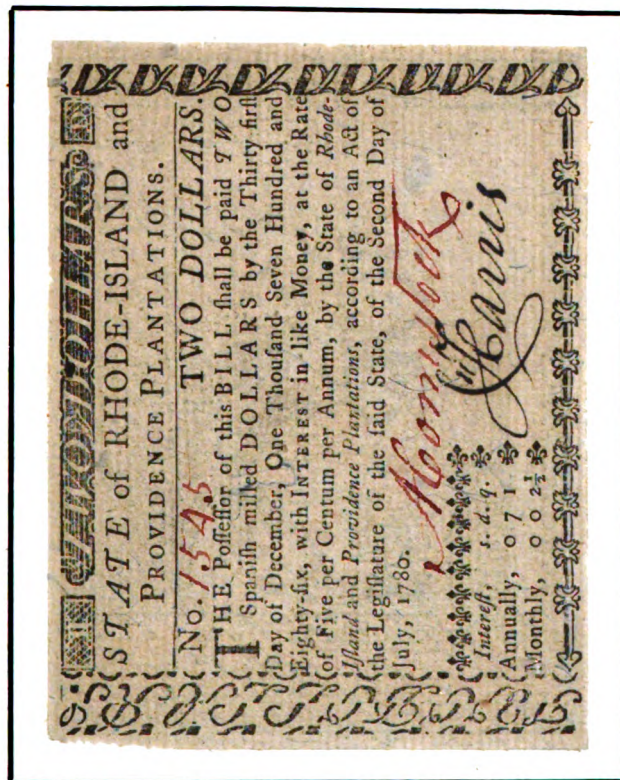 TWO DOLLARS
STATE of RHODE-ISLAND and
PROVIDENCE PLANTATIONS.
No. 1545 TWO DOLLARS.
THE Poſſeſſor of this BILL ſhall be paid TWO
Spaniſh milled DOLLARS by the Thirty firſt
Day of December, One Thouſand Seven Hundred and
Eighty-ſix, with INTEREST in like Money, at the Rate
of Five per Centum per Annum, by the State of Rhode-
Iſland and Providence Plantations, according to an Act of
the Legiſlature of the ſaid State, of the Second Day of
July, 1780.
Intereſt, s. d. q.
Annually, 0 7 1
Monthly, 0 0 2½
Harris